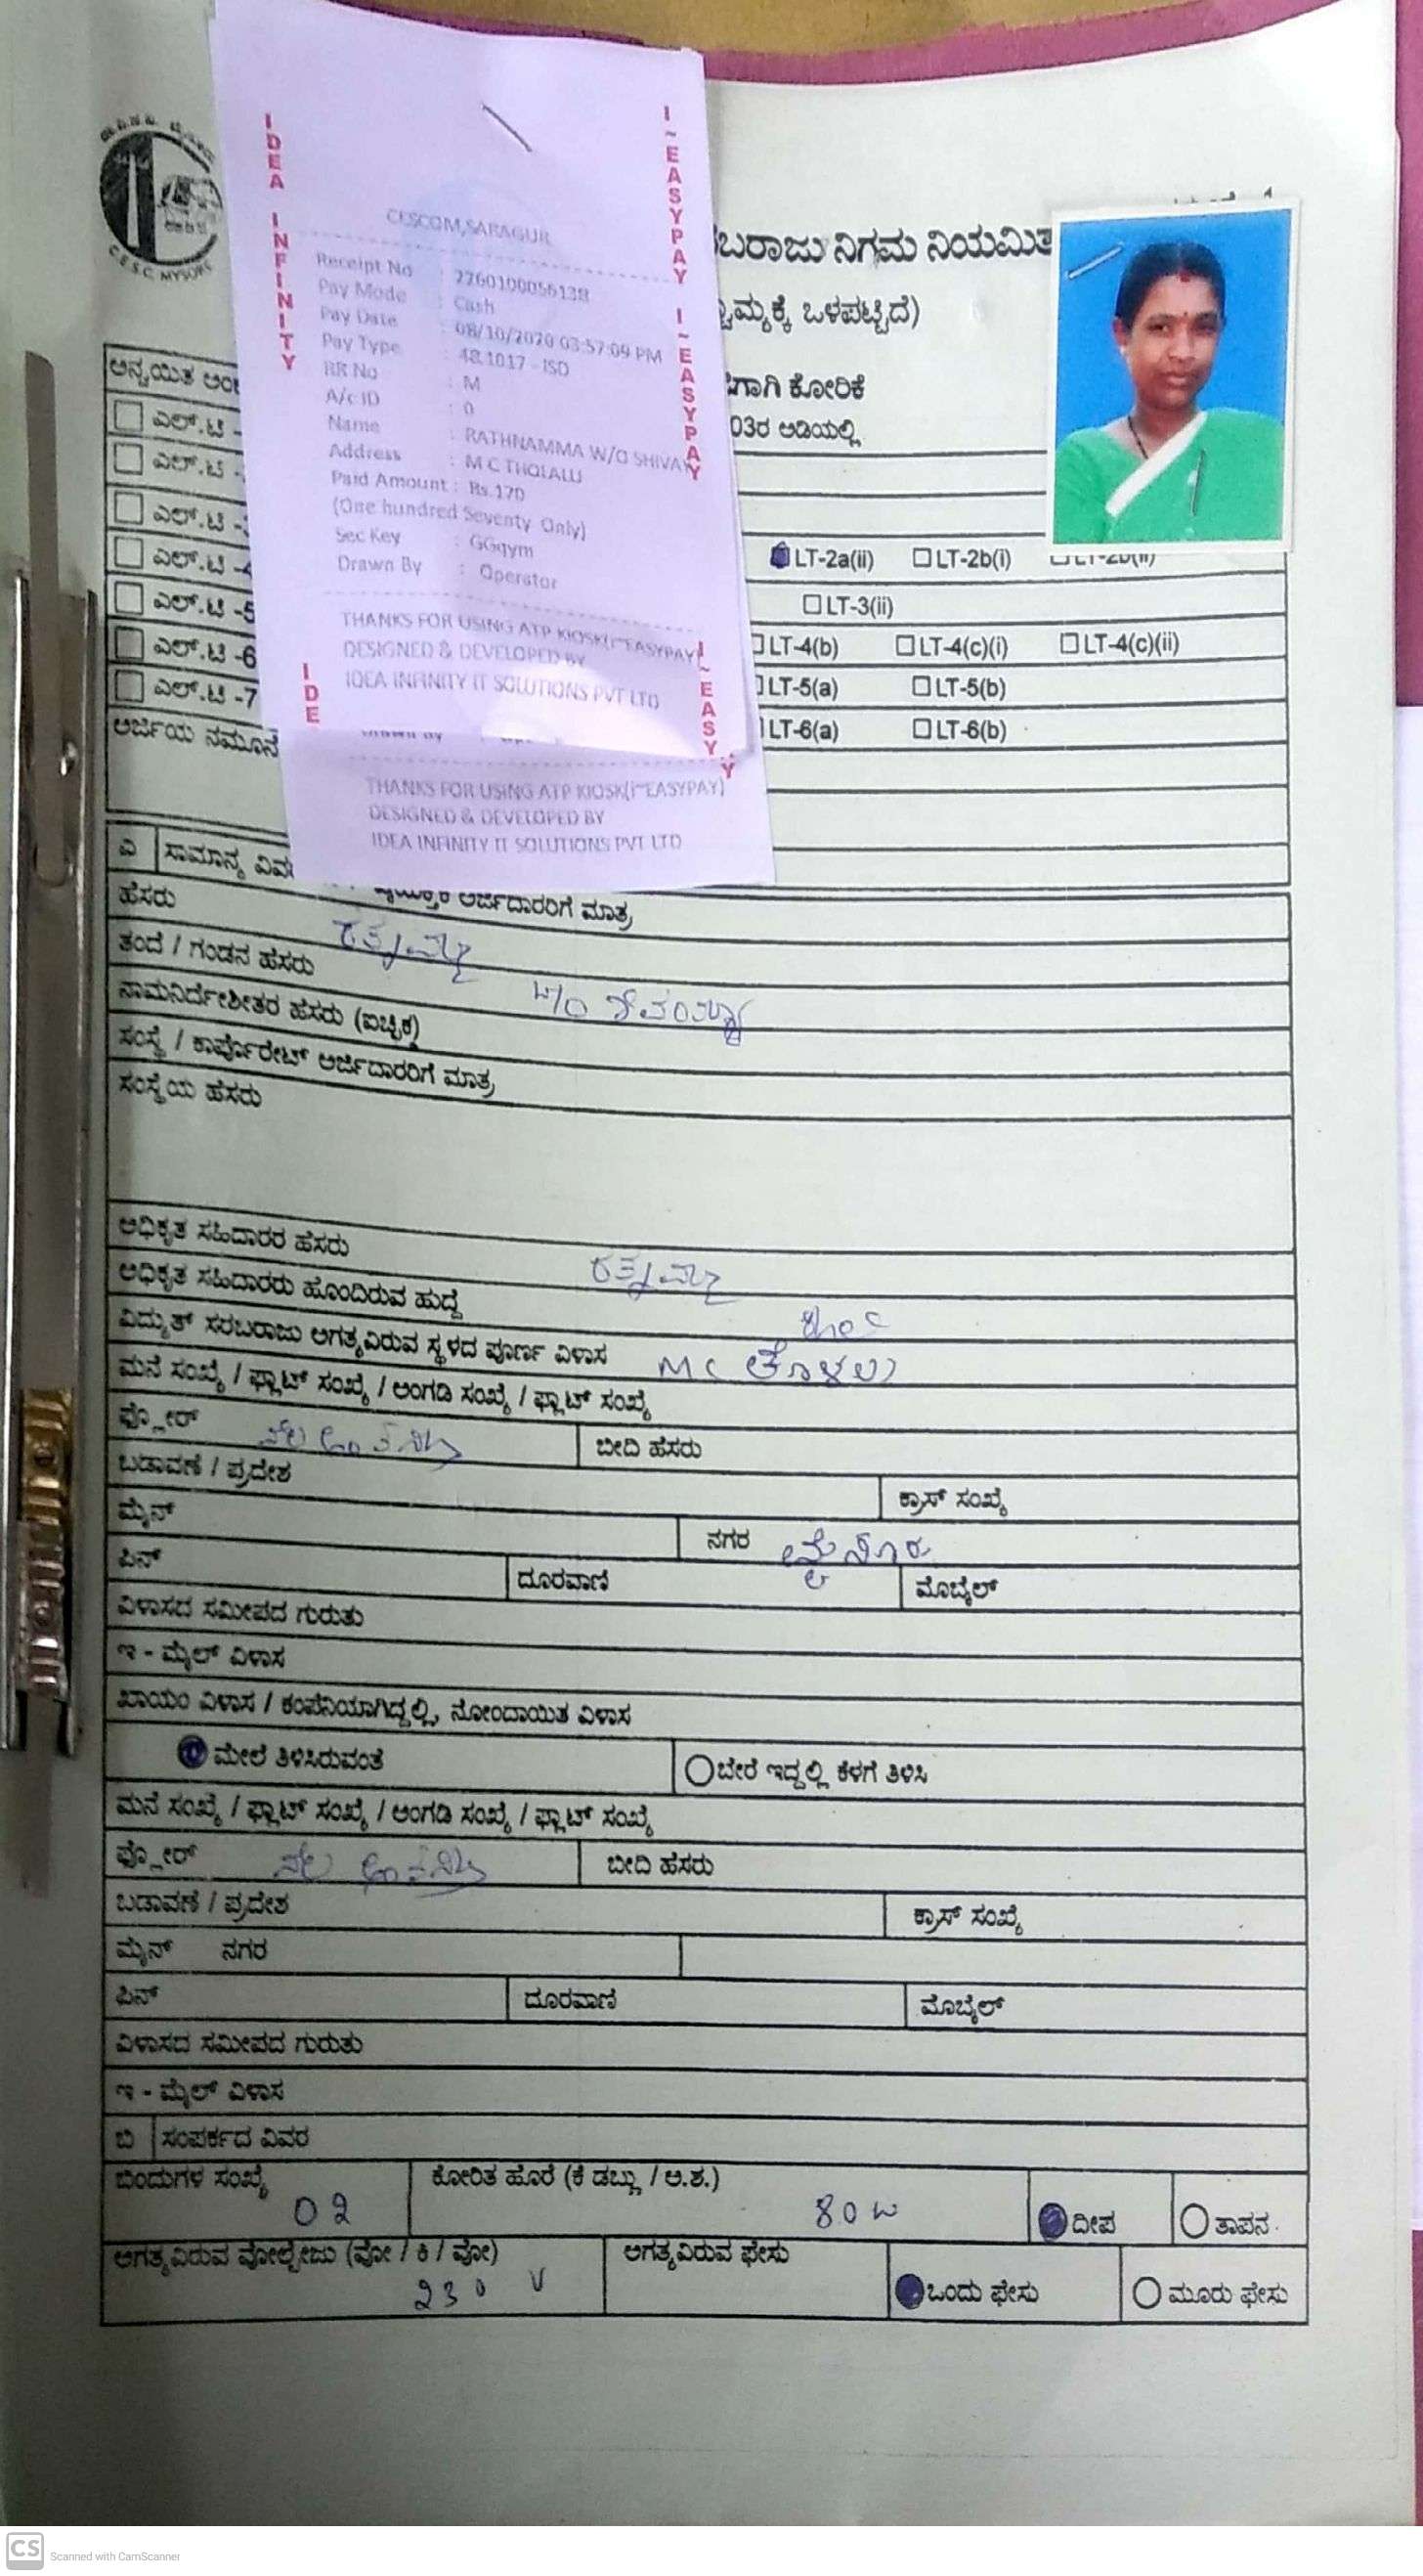 ಸೆ.ವಿ.ಸ.ನಿ. ಮೈಸೂರು
C.E.S.C. MYSORE
IDEA INFINITY
I~EASYPAY I~EASYPAY
CESCOM,SARAGUR
Receipt No : 2260100056138
Pay Mode : Cash
Pay Date : 08/10/2020 03:57:09 PM
Pay Type : 48.1017 - ISD
RR No : M
A/c ID : 0
Name : RATHNAMMA W/O SHIVA
Address : M C THOLALU
Paid Amount : Rs.170
(One hundred Seventy Only)
Sec Key : GGqym
Drawn By : Operator
THANKS FOR USING ATP KIOSK(i~EASYPAY)
DESIGNED & DEVELOPED BY
IDEA INFINITY IT SOLUTIONS PVT LTD
IDE
I~EASY
Y
THANKS FOR USING ATP KIOSK(i~EASYPAY)
DESIGNED & DEVELOPED BY
IDEA INFINITY IT SOLUTIONS PVT LTD
ಬರಾಜು ನಿಗಮ ನಿಯಮಿತ
ಮ್ಯಕ್ಕೆ ಒಳಪಟ್ಟಿದೆ)
ಗಾಗಿ ಕೋರಿಕೆ
03ರ ಅಡಿಯಲ್ಲಿ
ಅನ್ವಯಿತ
ಎಲ್.ಟಿ -
ಎಲ್.ಟಿ -
ಎಲ್.ಟಿ -
ಎಲ್.ಟಿ -4 LT-2a(ii) LT-2b(i) LT-2b(ii)
ಎಲ್.ಟಿ -5 LT-3(ii)
ಎಲ್.ಟಿ -6 LT-4(b) LT-4(c)(i) LT-4(c)(ii)
ಎಲ್.ಟಿ -7 LT-5(a) LT-5(b)
ಅರ್ಜಿಯ ನಮೂನೆ LT-6(a) LT-6(b)
ಎ ಸಾಮಾನ್ಯ ವಿವ
ವೈಯುಕ್ತಿಕ ಅರ್ಜಿದಾರರಿಗೆ ಮಾತ್ರ
ಹೆಸರು ರತ್ನಮ್ಮ
ತಂದೆ / ಗಂಡನ ಹೆಸರು W/O ಶಿವಯ್ಯ
ನಾಮನಿರ್ದೇಶೀತರ ಹೆಸರು (ಐಚ್ಛಿಕ)
ಸಂಸ್ಥೆ / ಕಾರ್ಪೊರೇಟ್ ಅರ್ಜಿದಾರರಿಗೆ ಮಾತ್ರ
ಸಂಸ್ಥೆಯ ಹೆಸರು
ಅಧಿಕೃತ ಸಹಿದಾರರ ಹೆಸರು ರತ್ನಮ್ಮ
ಅಧಿಕೃತ ಸಹಿದಾರರು ಹೊಂದಿರುವ ಹುದ್ದೆ
ವಿದ್ಯುತ್ ಸರಬರಾಜು ಅಗತ್ಯವಿರುವ ಸ್ಥಳದ ಪೂರ್ಣ ವಿಳಾಸ MC ತೊಳಲು
ಮನೆ ಸಂಖ್ಯೆ / ಫ್ಲಾಟ್ ಸಂಖ್ಯೆ / ಅಂಗಡಿ ಸಂಖ್ಯೆ / ಫ್ಲಾಟ್ ಸಂಖ್ಯೆ
ಫ್ಲೋರ್ ನೆಲ ಅಂತಸ್ತು ಬೀದಿ ಹೆಸರು
ಬಡಾವಣೆ / ಪ್ರದೇಶ ಕ್ರಾಸ್ ಸಂಖ್ಯೆ
ಮೈನ್ ನಗರ ಮೈಸೂರು
ಪಿನ್ ದೂರವಾಣಿ ಮೊಬೈಲ್
ವಿಳಾಸದ ಸಮೀಪದ ಗುರುತು
ಇ - ಮೈಲ್ ವಿಳಾಸ
ಖಾಯಂ ವಿಳಾಸ / ಕಂಪೆನಿಯಾಗಿದ್ದಲ್ಲಿ, ನೋಂದಾಯಿತ ವಿಳಾಸ
ಮೇಲೆ ತಿಳಿಸಿರುವಂತೆ ಬೇರೆ ಇದ್ದಲ್ಲಿ ಕೆಳಗೆ ತಿಳಿಸಿ
ಮನೆ ಸಂಖ್ಯೆ / ಫ್ಲಾಟ್ ಸಂಖ್ಯೆ / ಅಂಗಡಿ ಸಂಖ್ಯೆ / ಫ್ಲಾಟ್ ಸಂಖ್ಯೆ
ಫ್ಲೋರ್ ನೆಲ ಅಂತಸ್ತು ಬೀದಿ ಹೆಸರು
ಬಡಾವಣೆ / ಪ್ರದೇಶ ಕ್ರಾಸ್ ಸಂಖ್ಯೆ
ಮೈನ್ ನಗರ
ಪಿನ್ ದೂರವಾಣಿ ಮೊಬೈಲ್
ವಿಳಾಸದ ಸಮೀಪದ ಗುರುತು
ಇ - ಮೈಲ್ ವಿಳಾಸ
ಬಿ ಸಂಪರ್ಕದ ವಿವರ
ಬಿಂದುಗಳ ಸಂಖ್ಯೆ 02 ಕೋರಿತ ಹೊರೆ (ಕೆ ಡಬ್ಲ್ಯು / ಅ.ಶ.) 80 W ದೀಪ ತಾಪನ
ಅಗತ್ಯವಿರುವ ವೋಲ್ಟೇಜು (ವೋ / ಕಿ / ವೋ) 230 V ಅಗತ್ಯವಿರುವ ಫೇಸು ಒಂದು ಫೇಸು ಮೂರು ಫೇಸು
CS Scanned with CamScanner